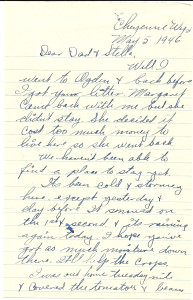 Cheyenne Wyo
May 5 1946
Dear Dad & Stella,
Well I
went to Ogden & back before
I got your letter Margaret
came back with me but she
didn't stay. She decided it
cost too much money to
live here so she went back
We haven't been able to
find a place to stay yet.
It's been cold & stormy
here except yesterday &
day before. It snowed on
the 1st & second & it's raining
again today. I hope you've
got as much moisture down
there. It'll help the crops.
I was out home tuesday nite
& covered the tomatoes & beans